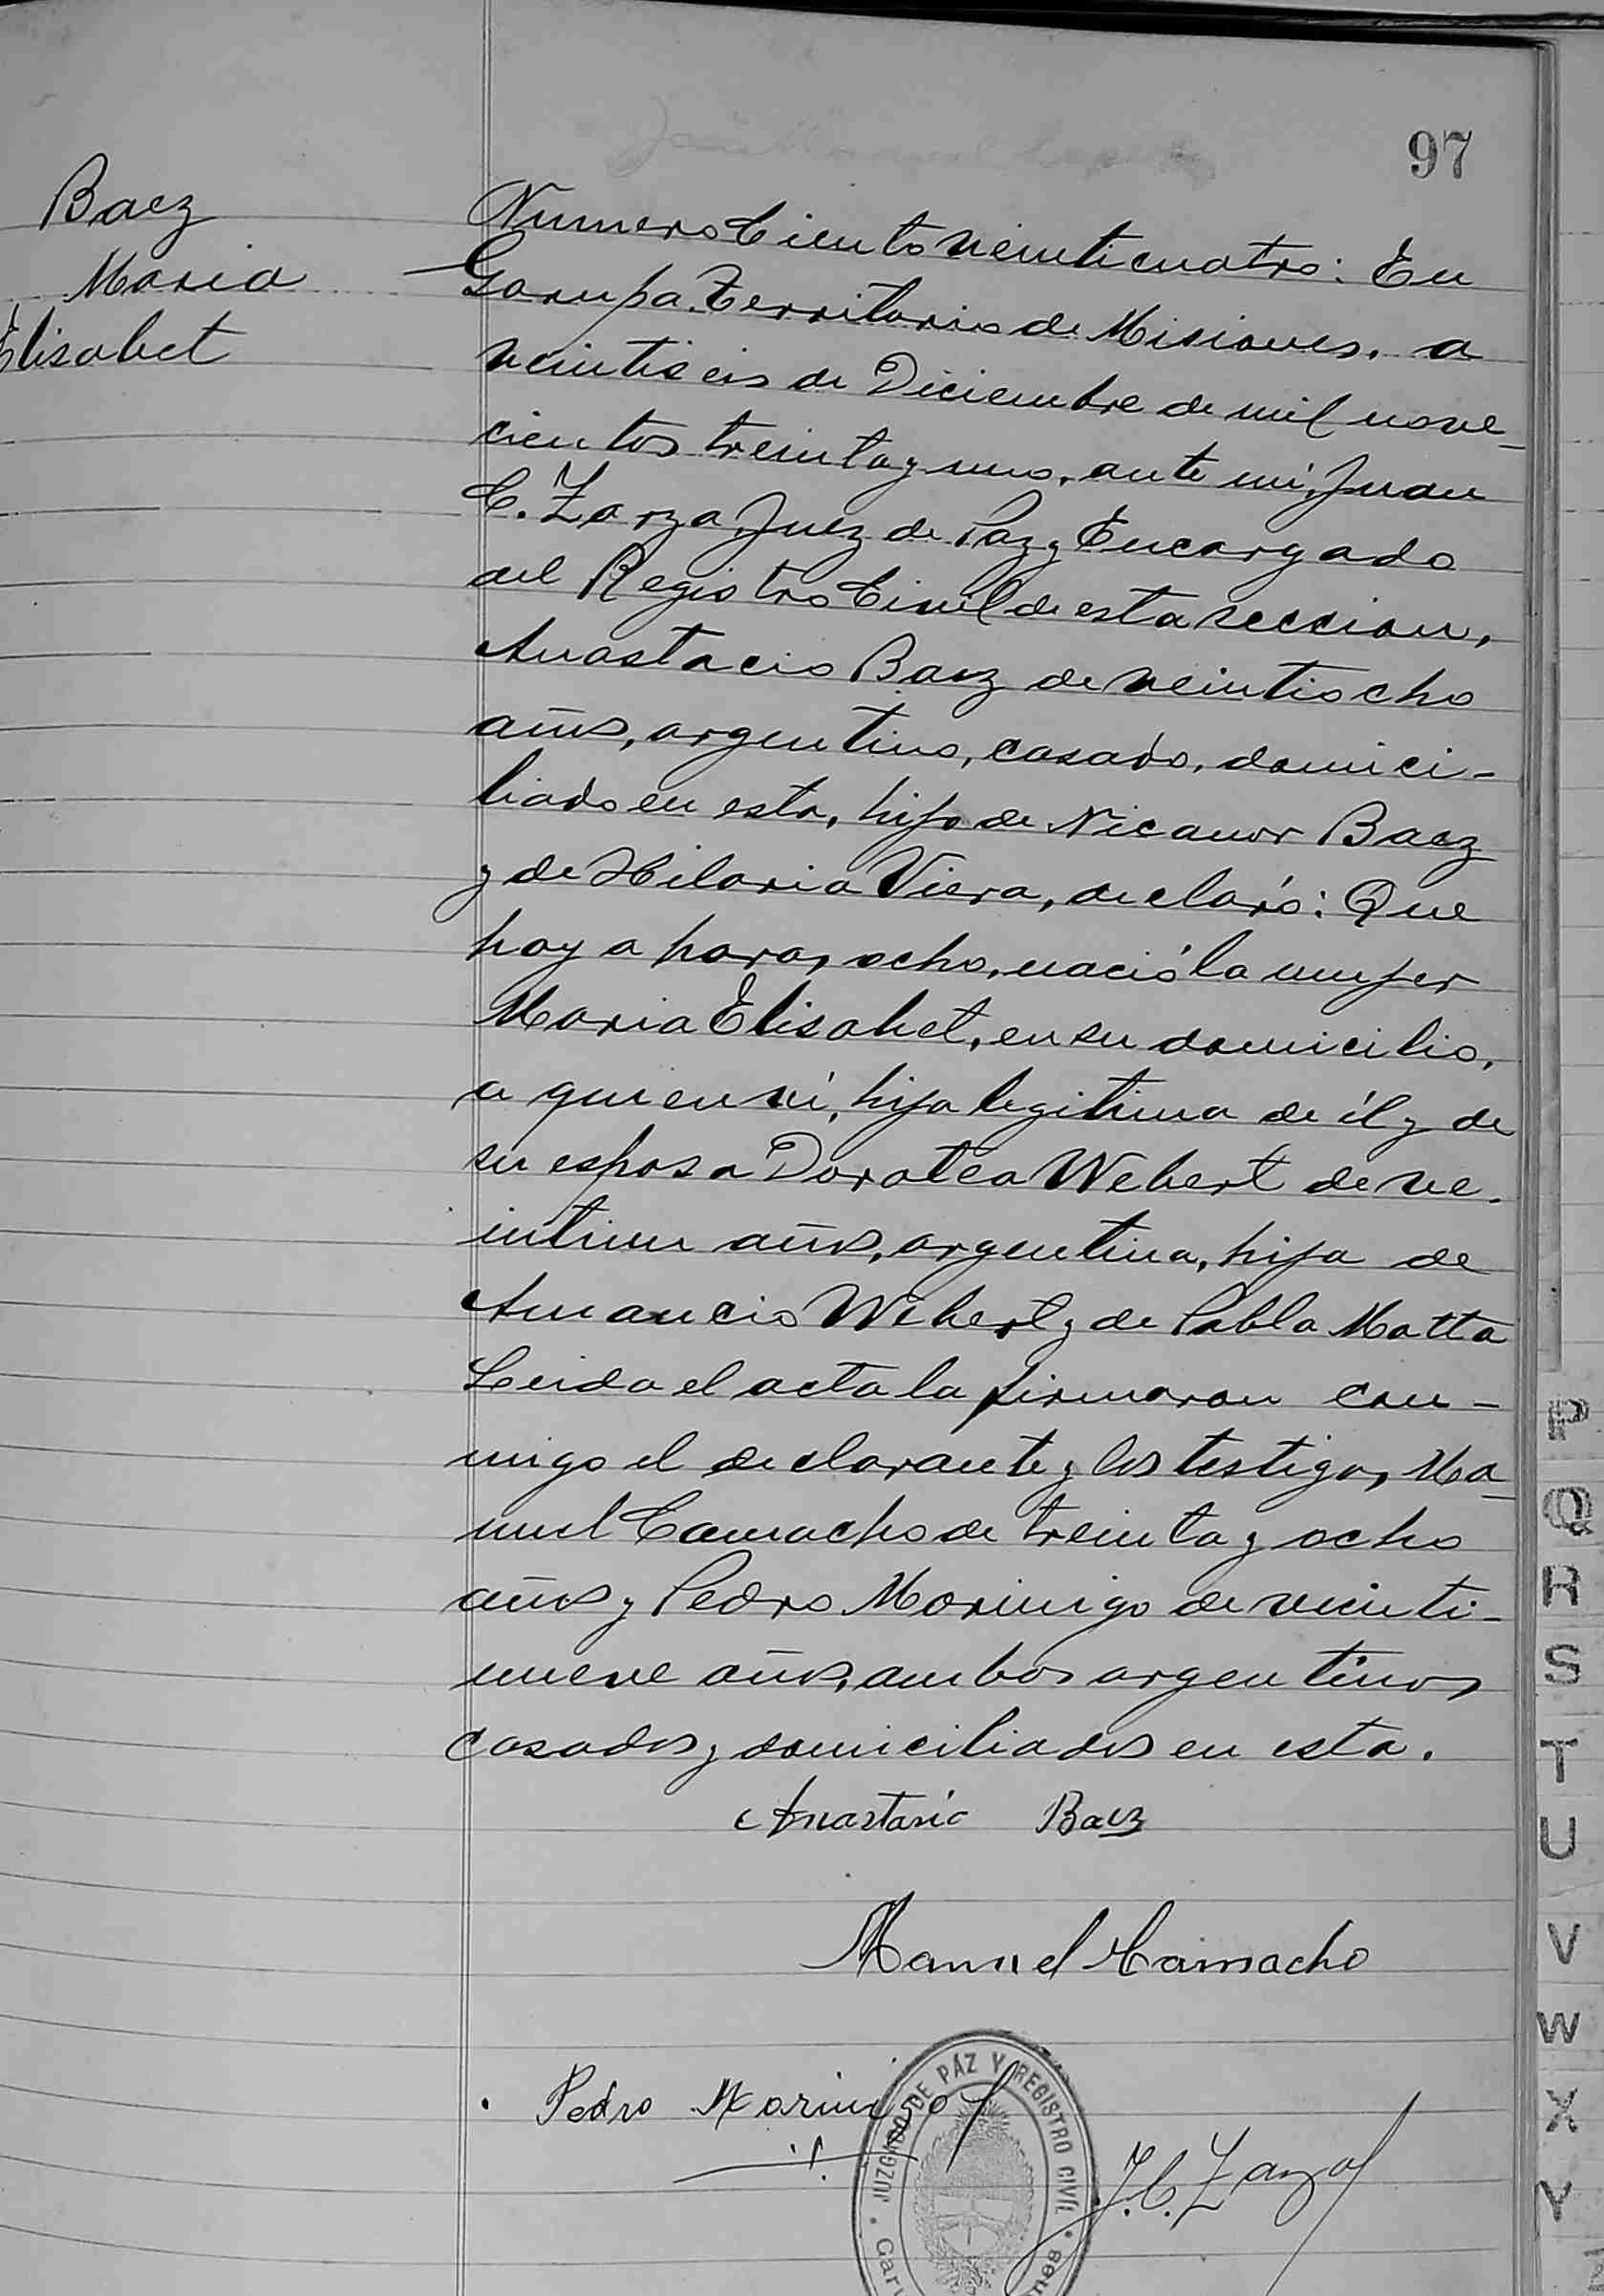 97
Baez
Maria
Elisabet
Numero Ciento veinticuatro: En
Garupa. Territorio de Misiones. a
veintiseis de Diciembre de mil nove-
cientos treinta y uno, ante mi, Juan
C. Zarza Juez de Paz y Encargado
del Registro Civil de esta seccion,
Anastacio Baez de veintiocho
años, argentino, casado, domici-
liado en esta, hijo de Nicanor Baez
y de Hilaria Viera, declaró: Que
hoy a horas ocho, nació la mujer
Maria Elisabet, en su domicilio,
a quien ví, hija legitima de él y de
su esposa Dorotea Webert de ve-
intiun años, argentina, hija de
Amancio Webert y de Pabla Matta
Leida el acta la firmaron con-
migo el declarante y los testigos, Ma-
nuel Camacho de treinta y ocho
años y Pedro Morinigo de veinti-
nueve años, ambos argentinos
casados y domiciliados en esta.
Anastasio Baez
Manuel Camacho
Pedro Morinigo
J. C. Zarza
JUZGADO DE PAZ Y REGISTRO CIVIL
P
Q
R
S
T
U
V
W
X
Y